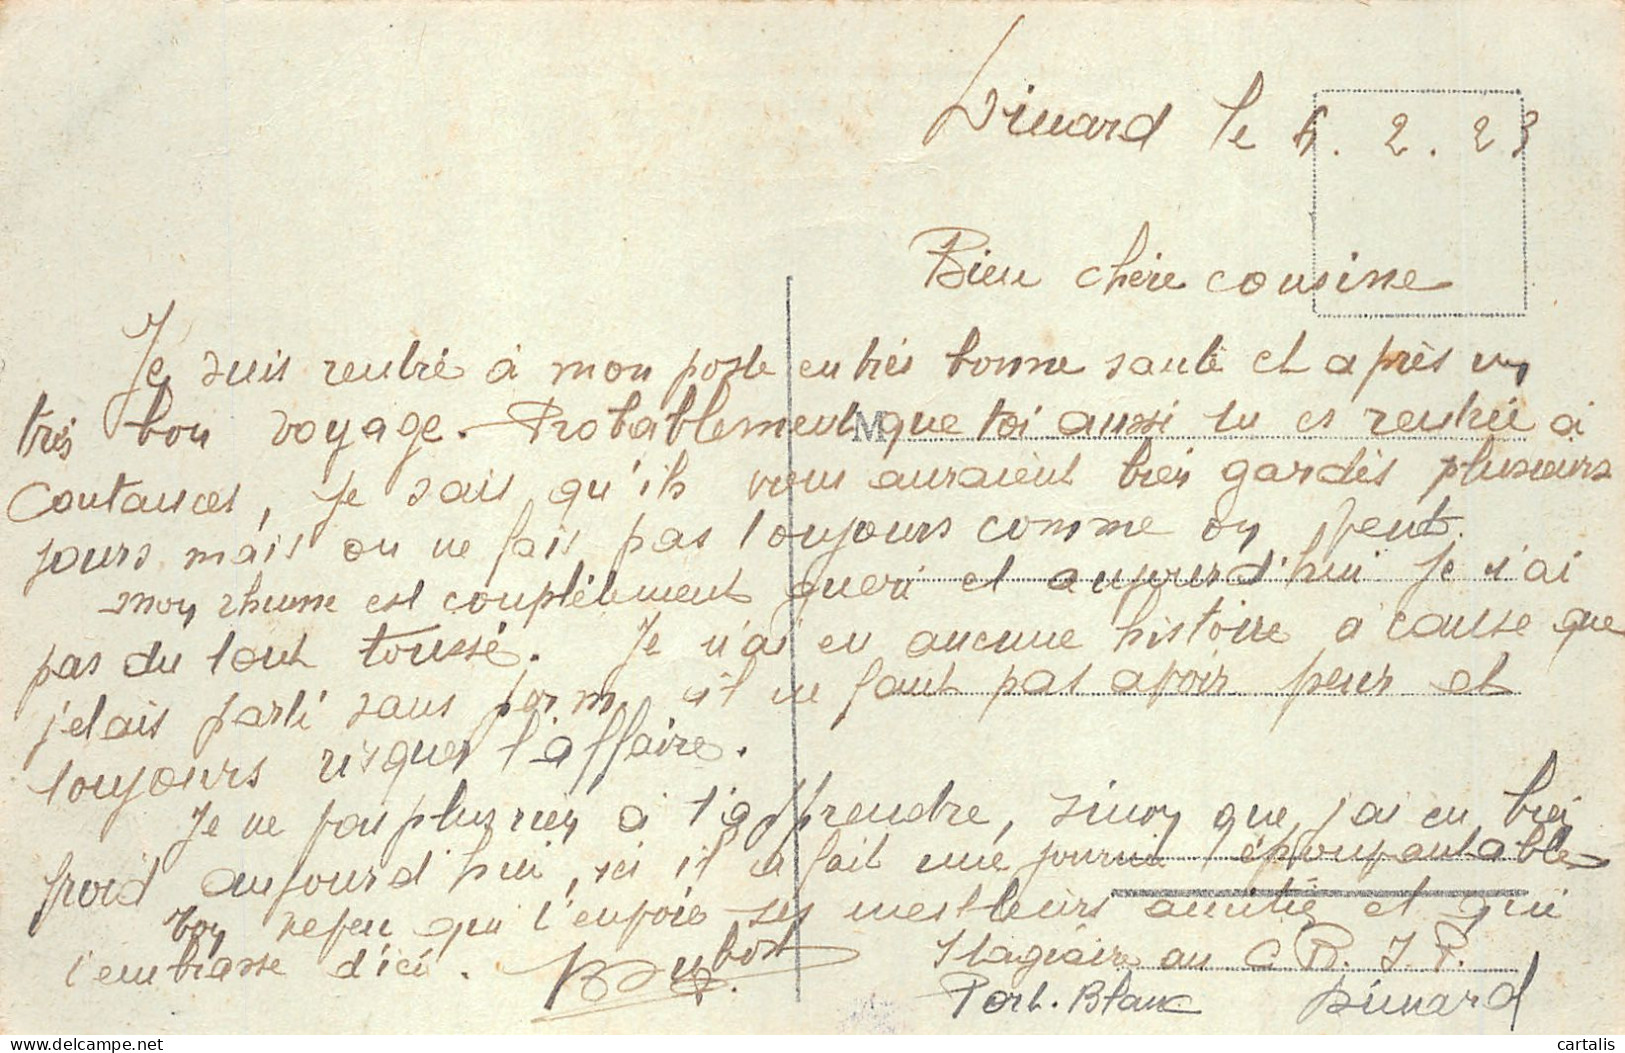 Dinard le 4. 2. 23
Bien chère cousine
Je suis rentré à mon poste en très bonne santé et après un
très bon voyage. Probablement que toi aussi tu es rentrée à
Coutances, je sais qu'ils vous auraient bien gardés plusieurs
jours mais on ne fais pas toujours comme on peut.
mon rhume est complètement gueri et aujourd'hui je n'ai
pas du tout toussé. Je n'ai eu aucune histoire a cause que
j'etais parti sans perm, il ne faut pas avoir peur et
toujours risquer l'affaire.
Je ne vois plus rien à t'apprendre, sinon que j'ai eu bien
froid aujourd'hui, ici il a fait une journée épouvantable
Ton neveu qui t'envoie ses meilleurs amitié et qui
t'embrasse d'ici.
Stagiaire au C R. I P.
Port. Blanc Dinard
M
cartalis